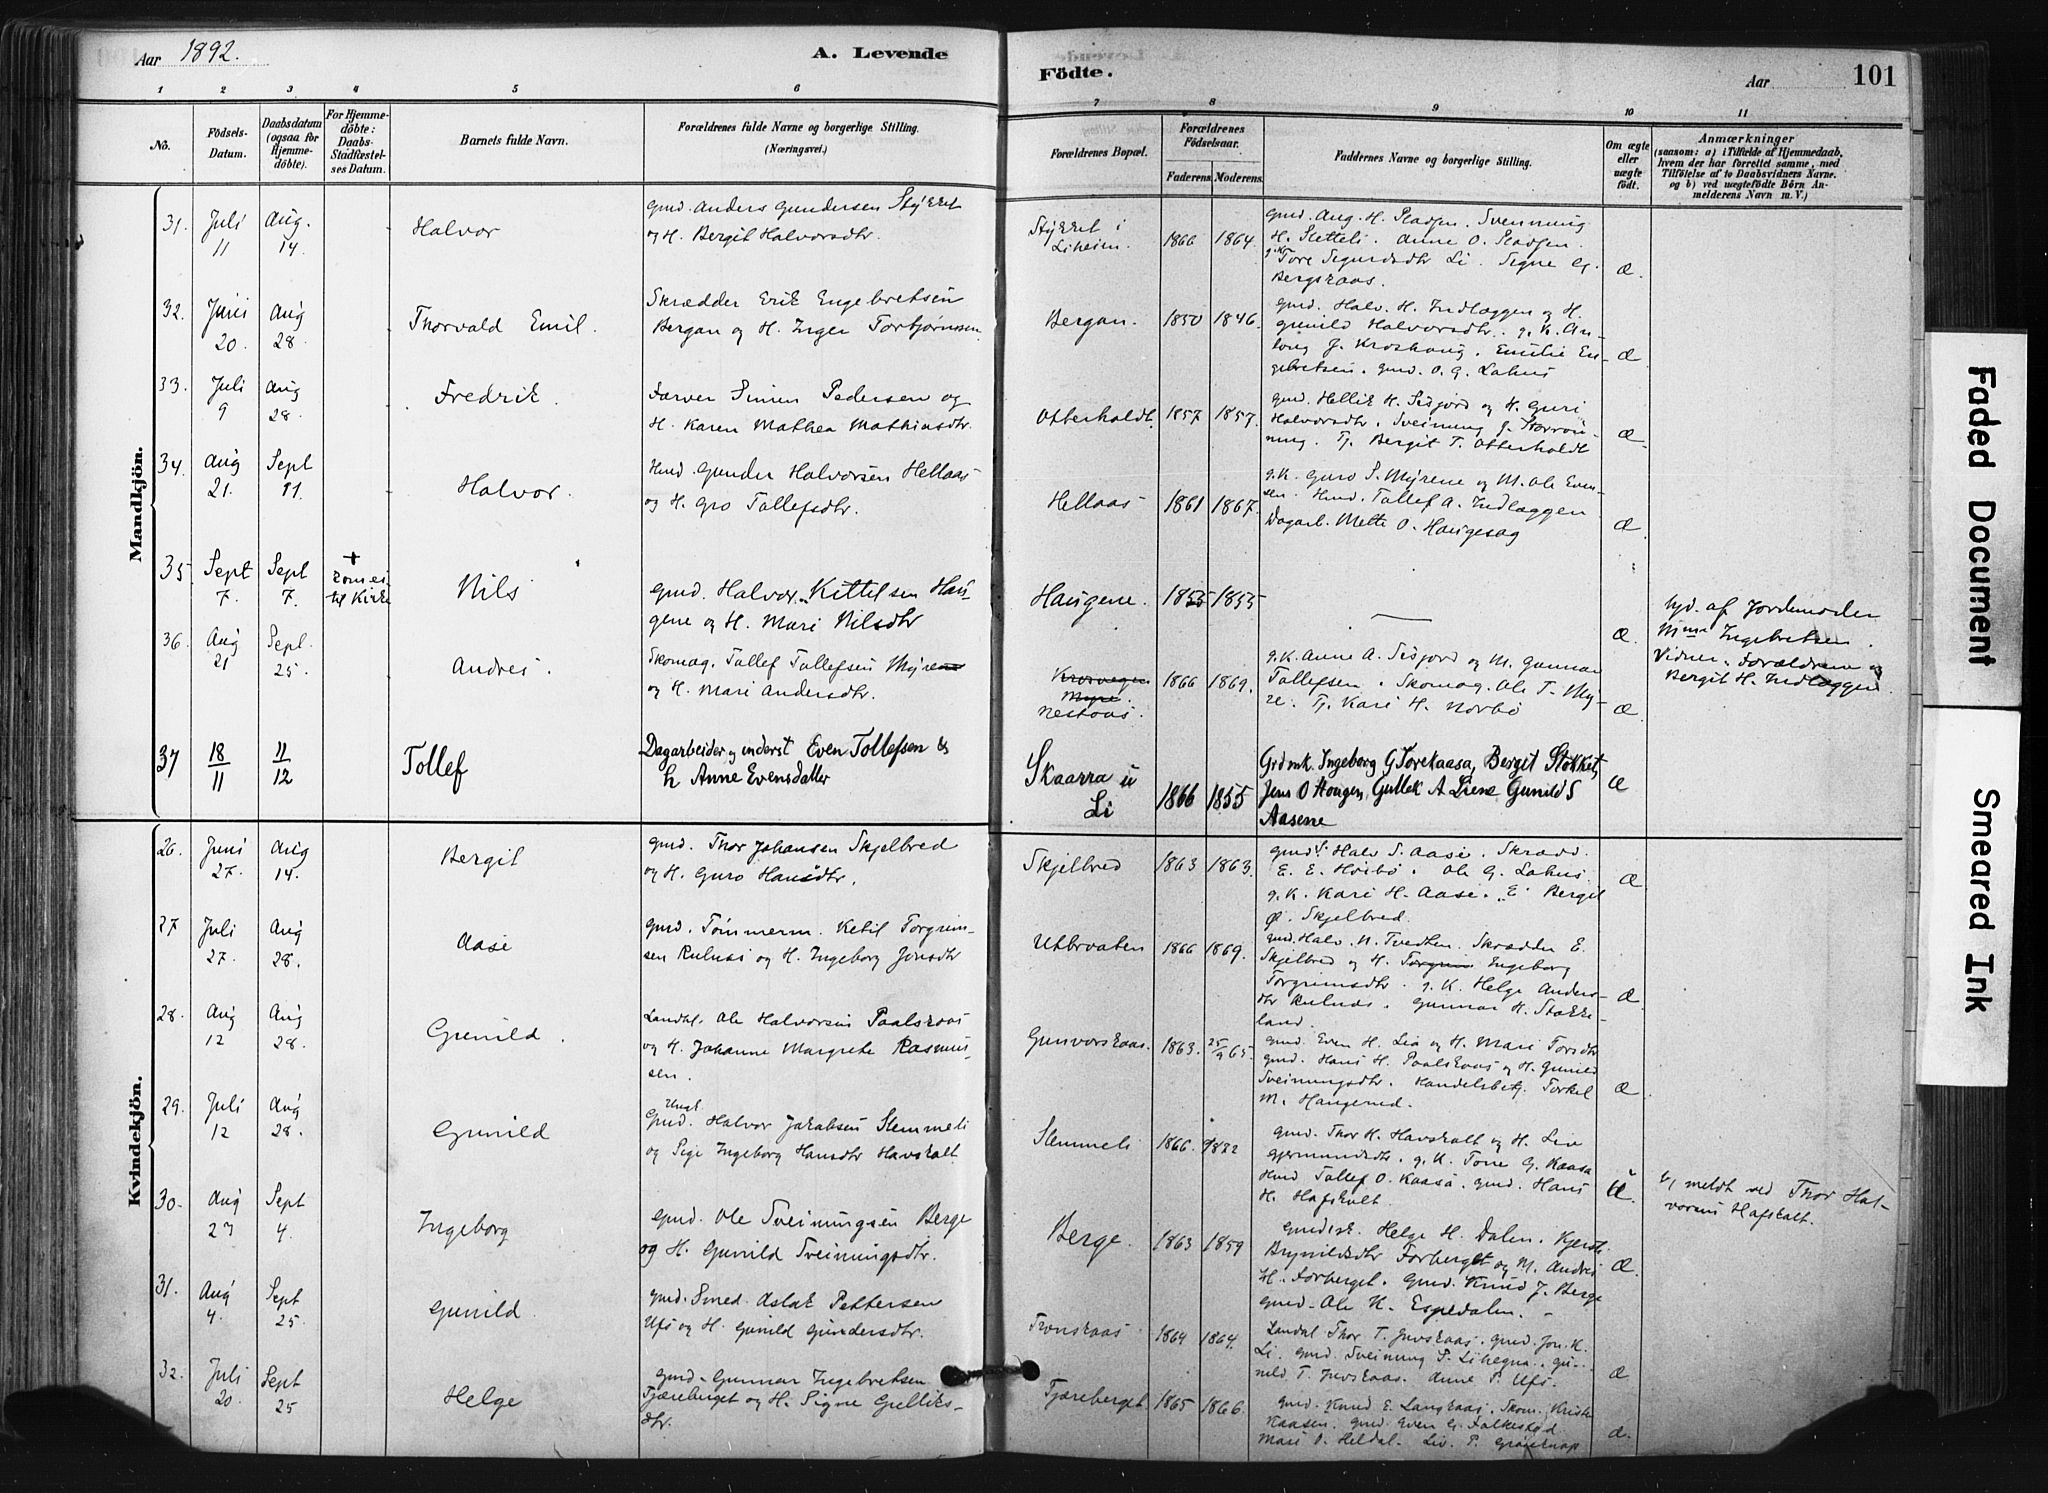 Aar 1892.
A. Levende
Födte.
Aar
101
1 2 3 4 5 6 7 8 9 10 11
No.
Födsels-Datum.
Daabsdatum (ogsaa for Hjemmedöbte).
For Hjemmedöbte: Daabs-Stadfæstelses Datum.
Barnets fulde Navn.
Forældrenes fulde Navne og borgerlige Stilling.
(Næringsvei.)
Forældrenes Bopæl.
Forældrenes Födselsaar.
Faderens. Moderens.
Faddernes Navne og borgerlige Stilling.
Om ægte eller uægte født.
Anmærkninger
(saasom: a) i Tilfælde af Hjemmedaab,
hvem der har forrettet samme, med
Tilföielse af to Daabsvidners Navne.
og b) ved uægtefödte Börn An-
melderens Navn m. V.)
Mandkjön.
31. Juli 11 Aug. 14 Halvor
Gmd. Anders Gundersen Stykket
og H. Bergit Halvorsdtr.
Stykket i Liheim. 1866 1864. Æ.
32. Juni 20. Aug 28 Thorvald Emil.
Skrædder Erik Engebretsen
Bergan og H. Inger Torbjørnssen
Bergan. 1850 1846.
Gmd. Halv. H. Indlæggen og H.
Gunild Halvorsdtr. Emilie En-
gebretsen. Gmd. O. G. Lahus Æ
33. Juli 9 Aug 28 Fredrik
Farver Simen Pedersen og
H. Karen Mathea Mathiasdtr.
Otterholdt. 1857 1857.
Gmd. Hellik H. Sisjord og H. Guri
Halvorsdtr. Sveinung
Tj. Bergit T. Otterholdt Æ
34. Aug 21. Sept 11. Halvor.
Hmd. Gunder Halvorsen Hellaas
og H. Gro Tollefsdtr.
Hellaas 1861 1867.
g.K. Guro S. Myrene og M. Ole Even-
sen. Hmd. Tollef A. Indlæggen
Dagarb. Mette O. Haugesag Æ
35 Sept 7. Sept 7. + kom ei til Kirke Nils
Gmd. Halvor Kittelsen Hau-
gene og H. Mari Nilsdtr
Haugene. 1855 1855 — Æ.
hjd. af Jordemoder
Mme Ingebretsen.
Vidner: Forældrene og
Bergit H. Indlæggen
36. Aug 21 Sept. 25. Andres.
Skomag. Tollef Tollefsen Myrene
og H. Mari Andersdtr.
Myre. Nestaas. 1866 1869.
g.K. Anne A. Sisjord og M. Gunnar
Tollefsen. Skomag. Ole T. My-
re. Tj. Kari H. Norbø Æ
37 18/11 11/12 Tollef
Dagarbeider og inderst Even Tollefsen &
h Anne Evensdatter
Skaarra u Li 1866 1855
Grdmk. Ingeborg G Torekaasa, Berget Stokket,
Jens O Haugen, Gullek A Liene Gunild S
Aasene Æ
Kvindekjön.
26. Juni 27. Aug 14. Bergit
Gmd. Thor Johansen Skjelbred
og H. Guro Hansdtr.
Skjelbred 1863 1863.
Gmd. Halv S. Aase. Skrædd.
E. E. Hvibø. Ole G. Lahus.
g.K. Kari H. Aase. E. Bergit
Ø. Skjelbred. Æ
27 Juli 27. Aug 28. Aase
Gmd. Tømmerm. Ketil Torgrim-
sen Rulnes og H. Ingeborg Jonsdtr
Utbraaten 1866 1869.
Gmd. Halv. N. Tvedten. Skrædder E.
Skjelbred og H. Torgrim Ingeborg
Torgrimsdtr. g.K. Helge Anders-
dtr Rulnes. Gunnar H. Stokke-
land. Æ
28. Aug 12 Aug 28. Gunild.
Landal. Ole Halvorsen Paalskaas
og H. Johanne Margrete Rasmus-
sen.
Gunvorskaas. 1863. 25/9 65.
Gmd. Even H. Lia og H. Mari Torsdtr
Gmd. Hans H. Paalskaas og H. Gunild
Sveinungsdtr. Handelsbetj. Torkel
M. Haugerud. Æ
29. Juli 12 Aug 28. Gunild
Ungk. Gmd. Halvor Jakobsen Slemmeli
og Pige Ingeborg Hansdtr Havskalt
Slemmeli 1866. 1872
Gmd. Thor H. Havskalt og H. Liv
Gjermundsdtr. g.K. Tone G. Kaasa
Hmd Tollef O. Kaasa. Gmd. Hans
H. Hafskalt. U.
meldt ved Thor Hal-
vorsen Hafskalt.
30. Aug 23 Sept 4. Ingeborg
Gmd. Ole Sveinungsen Berge
og H. Gunild Sveinungsdtr.
Berge. 1863 1859
Gmdsk. Helge H. Dalen. Kjersti
Brynildsdtr Forberget og M. Andres
H. Forberget. Gmd. Knud J. Berge
Gmd. Ole K. Espedalen. Æ.
31. Aug 4. Sept 25. Gunild.
Gmd. Smed. Aslak Pettersen
Ufs og H. Gunild Gundersdtr.
Tronskaas 1864 1864.
Landal Thor T. Juvskaas. Gmd. Jon K.
Li. Gmd. Sveinung P. Lihegna. Gu-
nild T. Juvskaas. Anne P. Ufs. Æ
32. Juli 20. Sept 25 Helge
Gmd. Gunnar Ingebretsen
Tjæreberget og H. Signe Gulliks-
dtr.
Tjæreberget 1865 1866.
Gmd. Knud E. Langkaas. Skom. Kristen
Kaasen. Gmd. Even G. Falkestad
Mari O. Heldal. Liv. P. Æ.
Faded Document
Smeared Ink